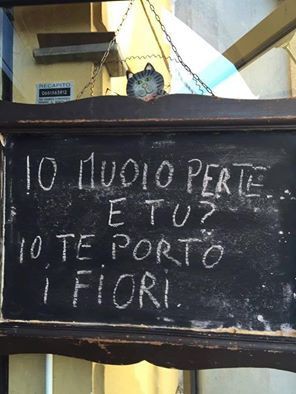 RECAPITO
IO MUOIO PER TE
E TU?
IO TE PORTO
i FIORI.